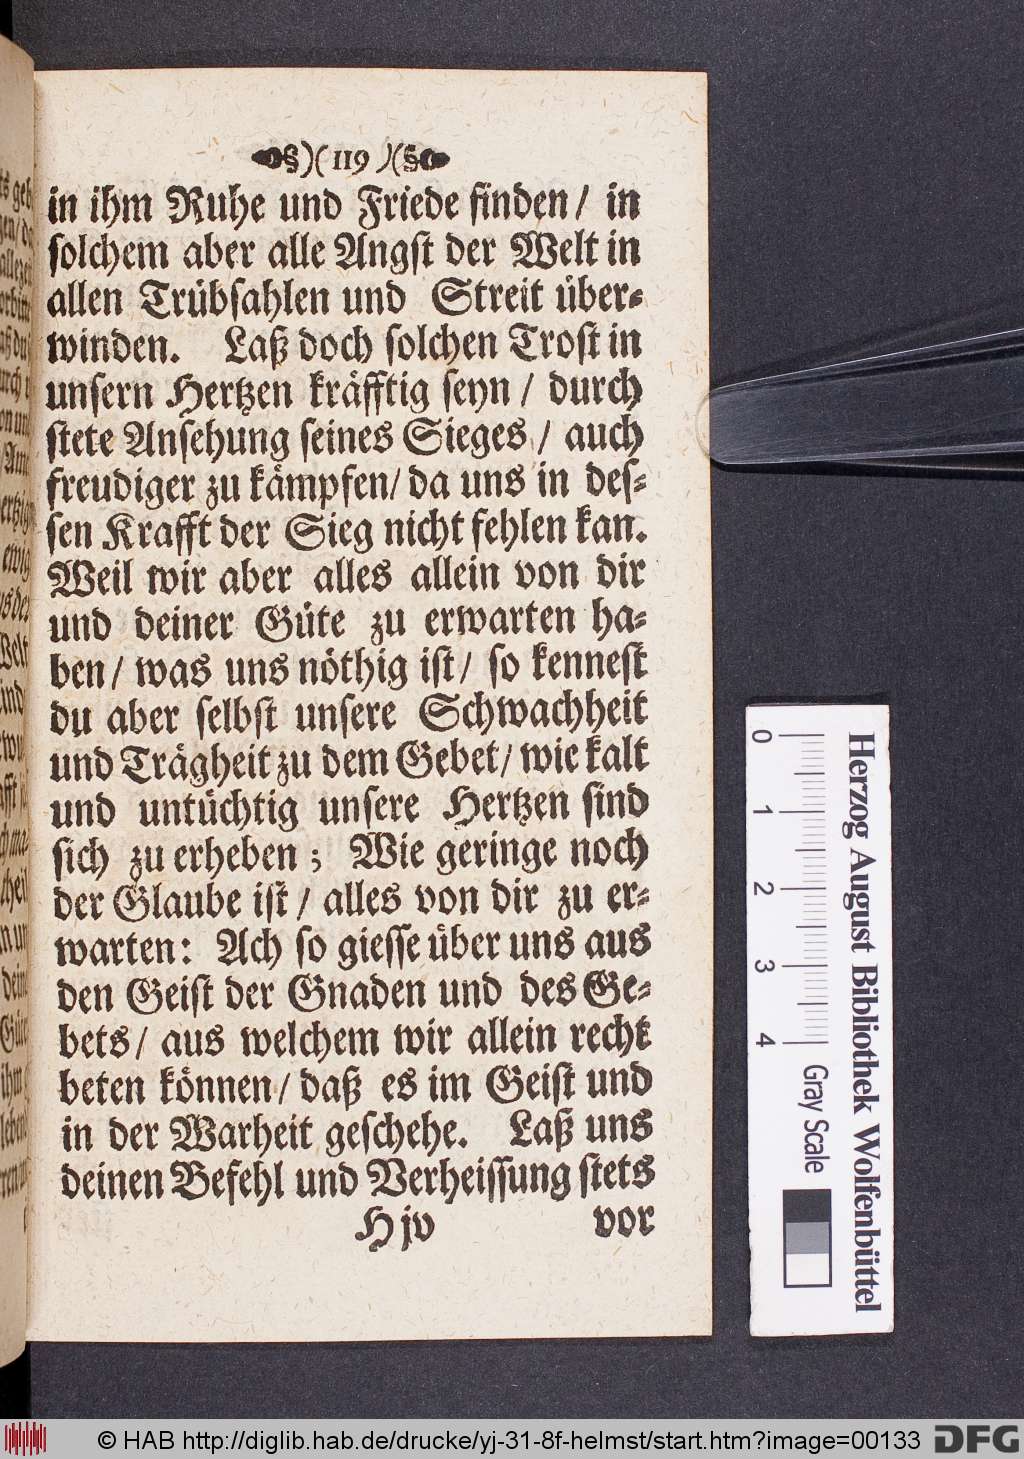 §)( 119 )(§
in ihm Ruhe und Friede finden / in
ſolchem aber alle Angſt der Welt in
allen Trübſahlen und Streit über⸗
winden. Laß doch ſolchen Troſt in
unſern Hertzen kräfftig ſeyn / durch
ſtete Anſehung ſeines Sieges / auch
freudiger zu kämpfen / da uns in deſ⸗
ſen Krafft der Sieg nicht fehlen kan.
Weil wir aber alles allein von dir
und deiner Güte zu erwarten ha⸗
ben / was uns nöthig iſt / ſo kenneſt
du aber ſelbſt unſere Schwachheit
und Trägheit zu dem Gebet / wie kalt
und untüchtig unſere Hertzen ſind
ſich zu erheben ; Wie geringe noch
der Glaube iſt / alles von dir zu er⸗
warten: Ach ſo gieſſe über uns aus
den Geiſt der Gnaden und des Ge⸗
bets / aus welchem wir allein recht
beten können / daß es im Geiſt und
in der Warheit geſchehe. Laß uns
deinen Befehl und Verheiſſung ſtets
H jv vor
0 1 2 3 4
Gray Scale
Herzog August Bibliothek Wolfenbüttel
© HAB http://diglib.hab.de/drucke/yj-31-8f-helmst/start.htm?image=00133
DFG